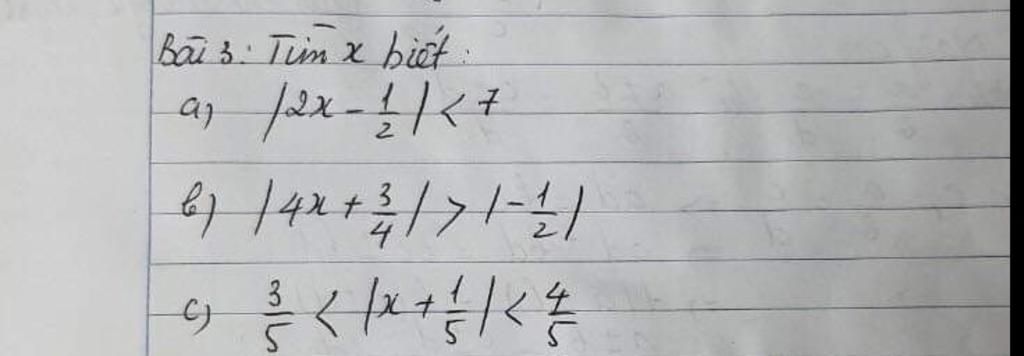 Bài 3: Tìm x biết:
a) |2x - 1/2| < 7
b) |4x + 3/4| > |-1/2|
c) 3/5 < |x + 1/5| < 4/5